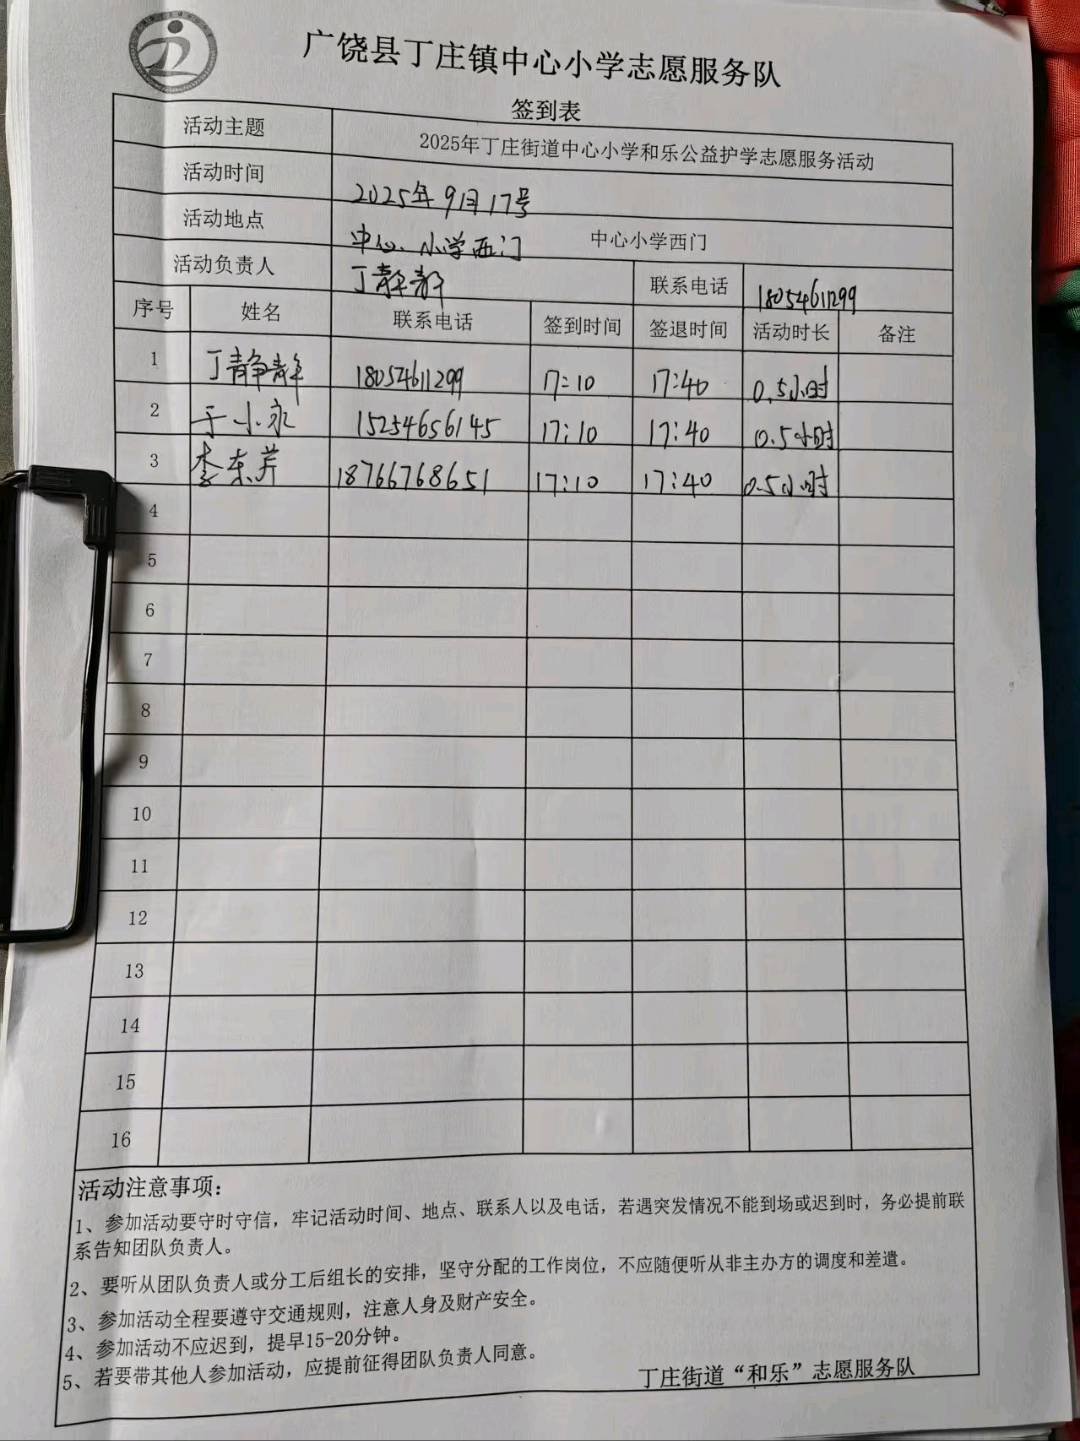 广饶县丁庄镇中心小学志愿服务队
签到表
活动主题 2025年丁庄街道中心小学和乐公益护学志愿服务活动
活动时间 2025年9月17号
活动地点 中心小学西门 中心小学西门
活动负责人 丁静静 联系电话 18054611299
序号 姓名 联系电话 签到时间 签退时间 活动时长 备注
1 丁静静 18054611299 17:10 17:40 0.5小时
2 于小永 15254656145 17:10 17:40 0.5小时
3 李东芹 18766768651 17:10 17:40 0.5小时
4
5
6
7
8
9
10
11
12
13
14
15
16
活动注意事项：
1、参加活动要守时守信，牢记活动时间、地点、联系人以及电话，若遇突发情况不能到场或迟到时，务必提前联
系告知团队负责人。
2、要听从团队负责人或分工后组长的安排，坚守分配的工作岗位，不应随便听从非主办方的调度和差遣。
3、参加活动全程要遵守交通规则，注意人身及财产安全。
4、参加活动不应迟到，提早15-20分钟。
5、若要带其他人参加活动，应提前征得团队负责人同意。
丁庄街道“和乐”志愿服务队